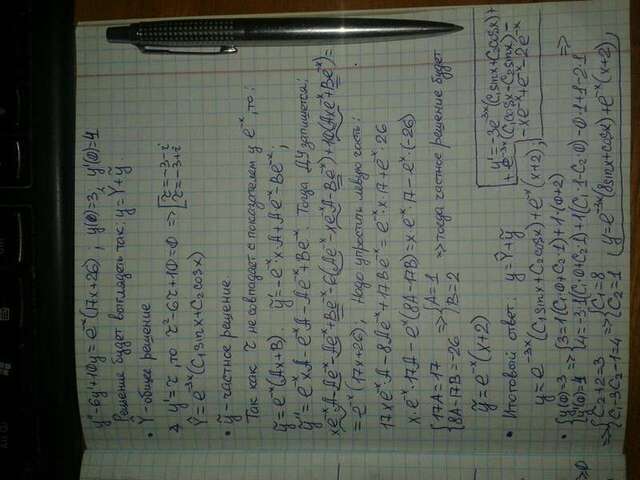 y''-6y'+10y=e⁻ˣ(17x+26); y(0)=3, y'(0)=1
Решение будет выглядеть так: y=Ŷ+ỹ
• Ŷ-общее решение
y'=r, то r²-6r+10=0 ⇒ [r=-3-i r=-3+i
Ŷ=e⁻³ˣ(C₁sinx+C₂cosx)
• ỹ-частное решение
Так как r не совпадает с показателем у e⁻ˣ, то:
ỹ=e⁻ˣ(Ax+B), ỹ'=-e⁻ˣxA+Ae⁻ˣ-Be⁻ˣ,
ỹ''=e⁻ˣxA-Ae⁻ˣ-Ae⁻ˣ+Be⁻ˣ. Тогда ДУ запишется:
xe⁻ˣA-Ae⁻ˣ-Ae⁻ˣ+Be⁻ˣ-6(Ae⁻ˣ-xe⁻ˣA-Be⁻ˣ)+10(Axe⁻ˣ+Be⁻ˣ)=
=e⁻ˣ(17x+26), Надо упростить левую часть:
17xe⁻ˣA-8Ae⁻ˣ+17Be⁻ˣ=e⁻ˣ·x·17+e⁻ˣ·26
x·e⁻ˣ·17A-e⁻ˣ(8A-17B)=x·e⁻ˣ·17-e⁻ˣ(-26)
{17A=17 8A-17B=-26 ⇒ {A=1 B=2 ⇒ тогда частное решение будет
ỹ=e⁻ˣ(x+2)
• Итоговый ответ: y=Ŷ+ỹ
y=e⁻³ˣ(C₁sinx+C₂cosx)+e⁻ˣ(x+2);
y'=-3e⁻³ˣ(C₁sinx+C₂cosx)+
+e⁻³ˣ(C₁cosx-C₂sinx)-
-xe⁻ˣ+e⁻ˣ-2e⁻ˣ
• {y(0)=3 y'(0)=1 ⇒ {3=1(C₁·0+C₂·1)+1·(0+2) 1=-3·1(C₁·0+C₂·1)+1(C₁·1-C₂·0)-0·1+1-2·1 ⇒
⇒ {C₂+2=3 C₁-3C₂-1=4 ⇒ {C₁=8 C₂=1 (y=e⁻³ˣ(8sinx+cosx)+e⁻ˣ(x+2))